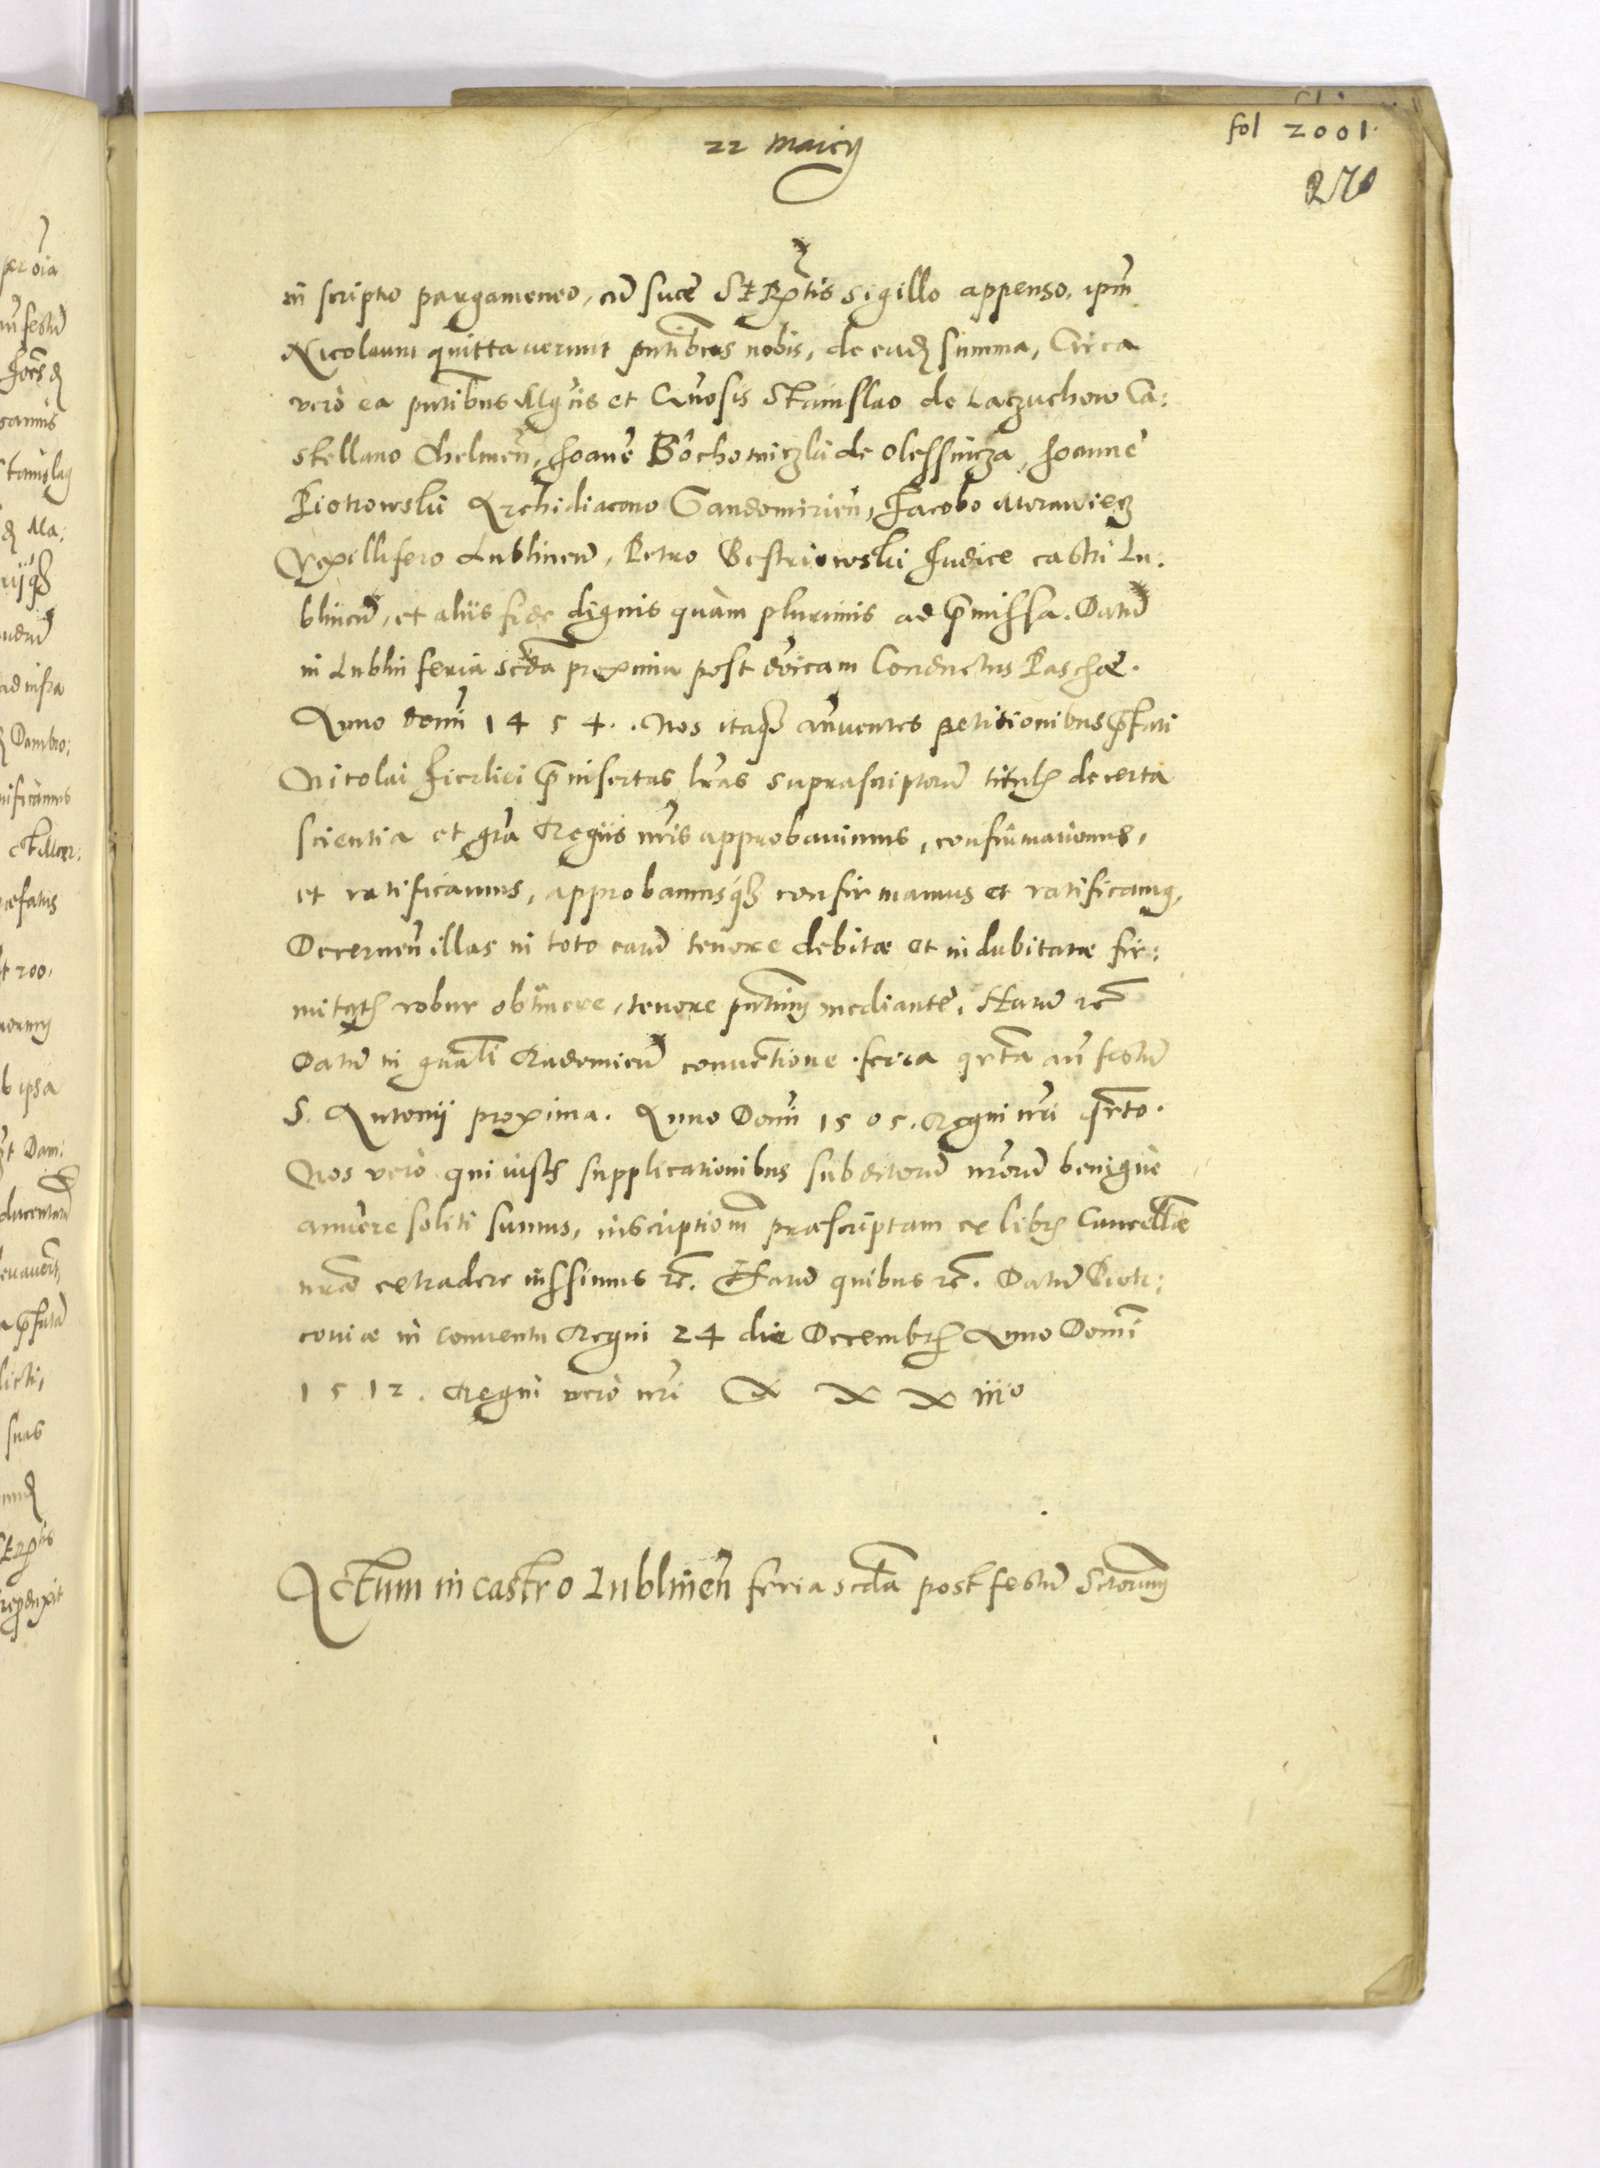 fol 2001.
22 Maicij
in scripto pargameneo, cu sucæ Sttis sigillo appenso, ipm
Nicolaum quittaverunt pntibus nobis, de ead summa, Circa
vero ea pntibus Mgcis et Gnosis Stanislao de Laczuchow Ca:
stellano Chelmen, Joane Bochotniczki de Olessnicza, Joanne
Piotrowski Archidiacono Sandomirien, Jacobo Morawiecz
Vexillifero Lublinen, Petro Bestriowski Judice castri Lu:
blinen, et aliis fide dignis quàm plurimis ad pmissa. Datum
in Lublin feria scda proxima post dnicam Conductus Paschæ.
Anno domi 1454. Nos itaq annuentes petitionibus pfati
Nicolai Firlici pinsertas lras suprascriptaru titulis de certa
scientia et gra Regiis nris approbavimus, confirmavimus,
et ratificamus, approbamusq confirmamus et ratificamus,
Decernen illas in toto earu tenore debitæ et indubitatæ fir:
mitatis robur obtinere, tenore pntium mediante. Haru rc
Datu in gnali Radomien conventione feria qrta an festu
S. Antonij proxima. Anno Domi 1505. Regni nri qrto.
Nos vero qui iustis supplicationibus subditoru nroru benigne
annuere soliti sumus, inscriptionem præscriptam ex libris Cancellæ
nræ extradere iussimus rc. Haru quibus rc. Datu Piotr:
coviæ in conventu Regni 24 die Decembris Anno Domi
1512. Regni vero nri
Actum in castro Lublinen feria scda post festu Sctorum